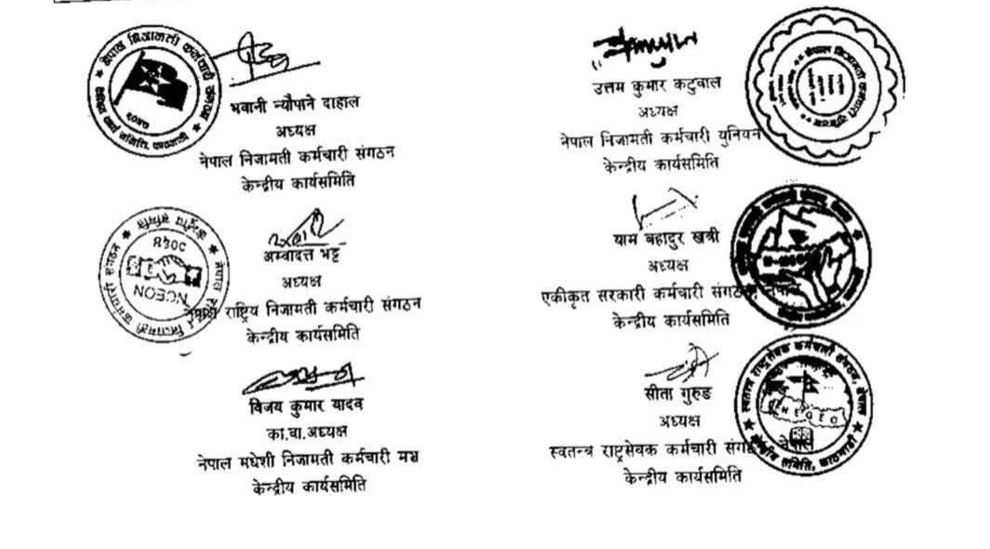 भवानी न्यौपाने दाहाल
अध्यक्ष
नेपाल निजामती कर्मचारी संगठन
केन्द्रीय कार्यसमिति
उत्तम कुमार कटुवाल
अध्यक्ष
नेपाल निजामती कर्मचारी युनियन
केन्द्रीय कार्यसमिति
अम्वादत्त भट्ट
अध्यक्ष
नेपाल राष्ट्रिय निजामती कर्मचारी संगठन
केन्द्रीय कार्यसमिति
NCEON
याम बहादुर खत्री
अध्यक्ष
एकीकृत सरकारी कर्मचारी संगठन, नेपाल
केन्द्रीय कार्यसमिति
विजय कुमार यादव
का.वा.अध्यक्ष
नेपाल मधेशी निजामती कर्मचारी मञ्च
केन्द्रीय कार्यसमिति
सीता गुरुङ
अध्यक्ष
स्वतन्त्र राष्ट्रसेवक कर्मचारी संगठन नेपाल
केन्द्रीय कार्यसमिति
स्वतन्त्र राष्ट्रसेवक कर्मचारी संगठन, नेपाल
केन्द्रीय समिति, काठमाडौं